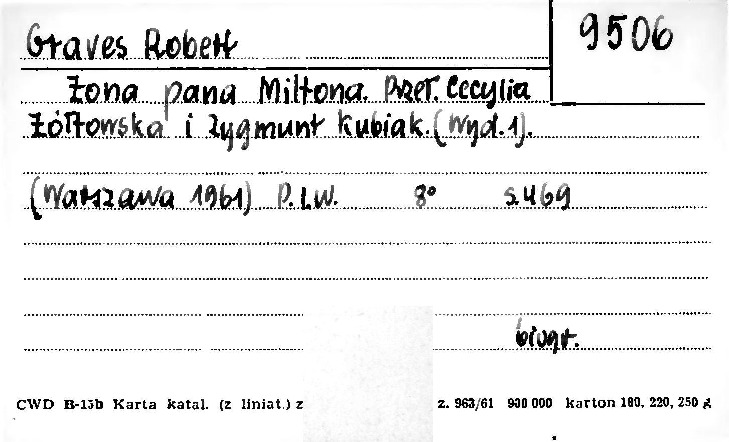 Graves Robert
9506
Żona pana Miltona. Przeł. Cecylia
Żółtowska i Zygmunt Kubiak. (Wyd. 1).
(Warszawa 1961) P.I.W. 8° s. 469
biogr.
CWD B-15b Karta katal. (z liniat.) z z. 963/61 900 000 karton 180, 220, 250 g